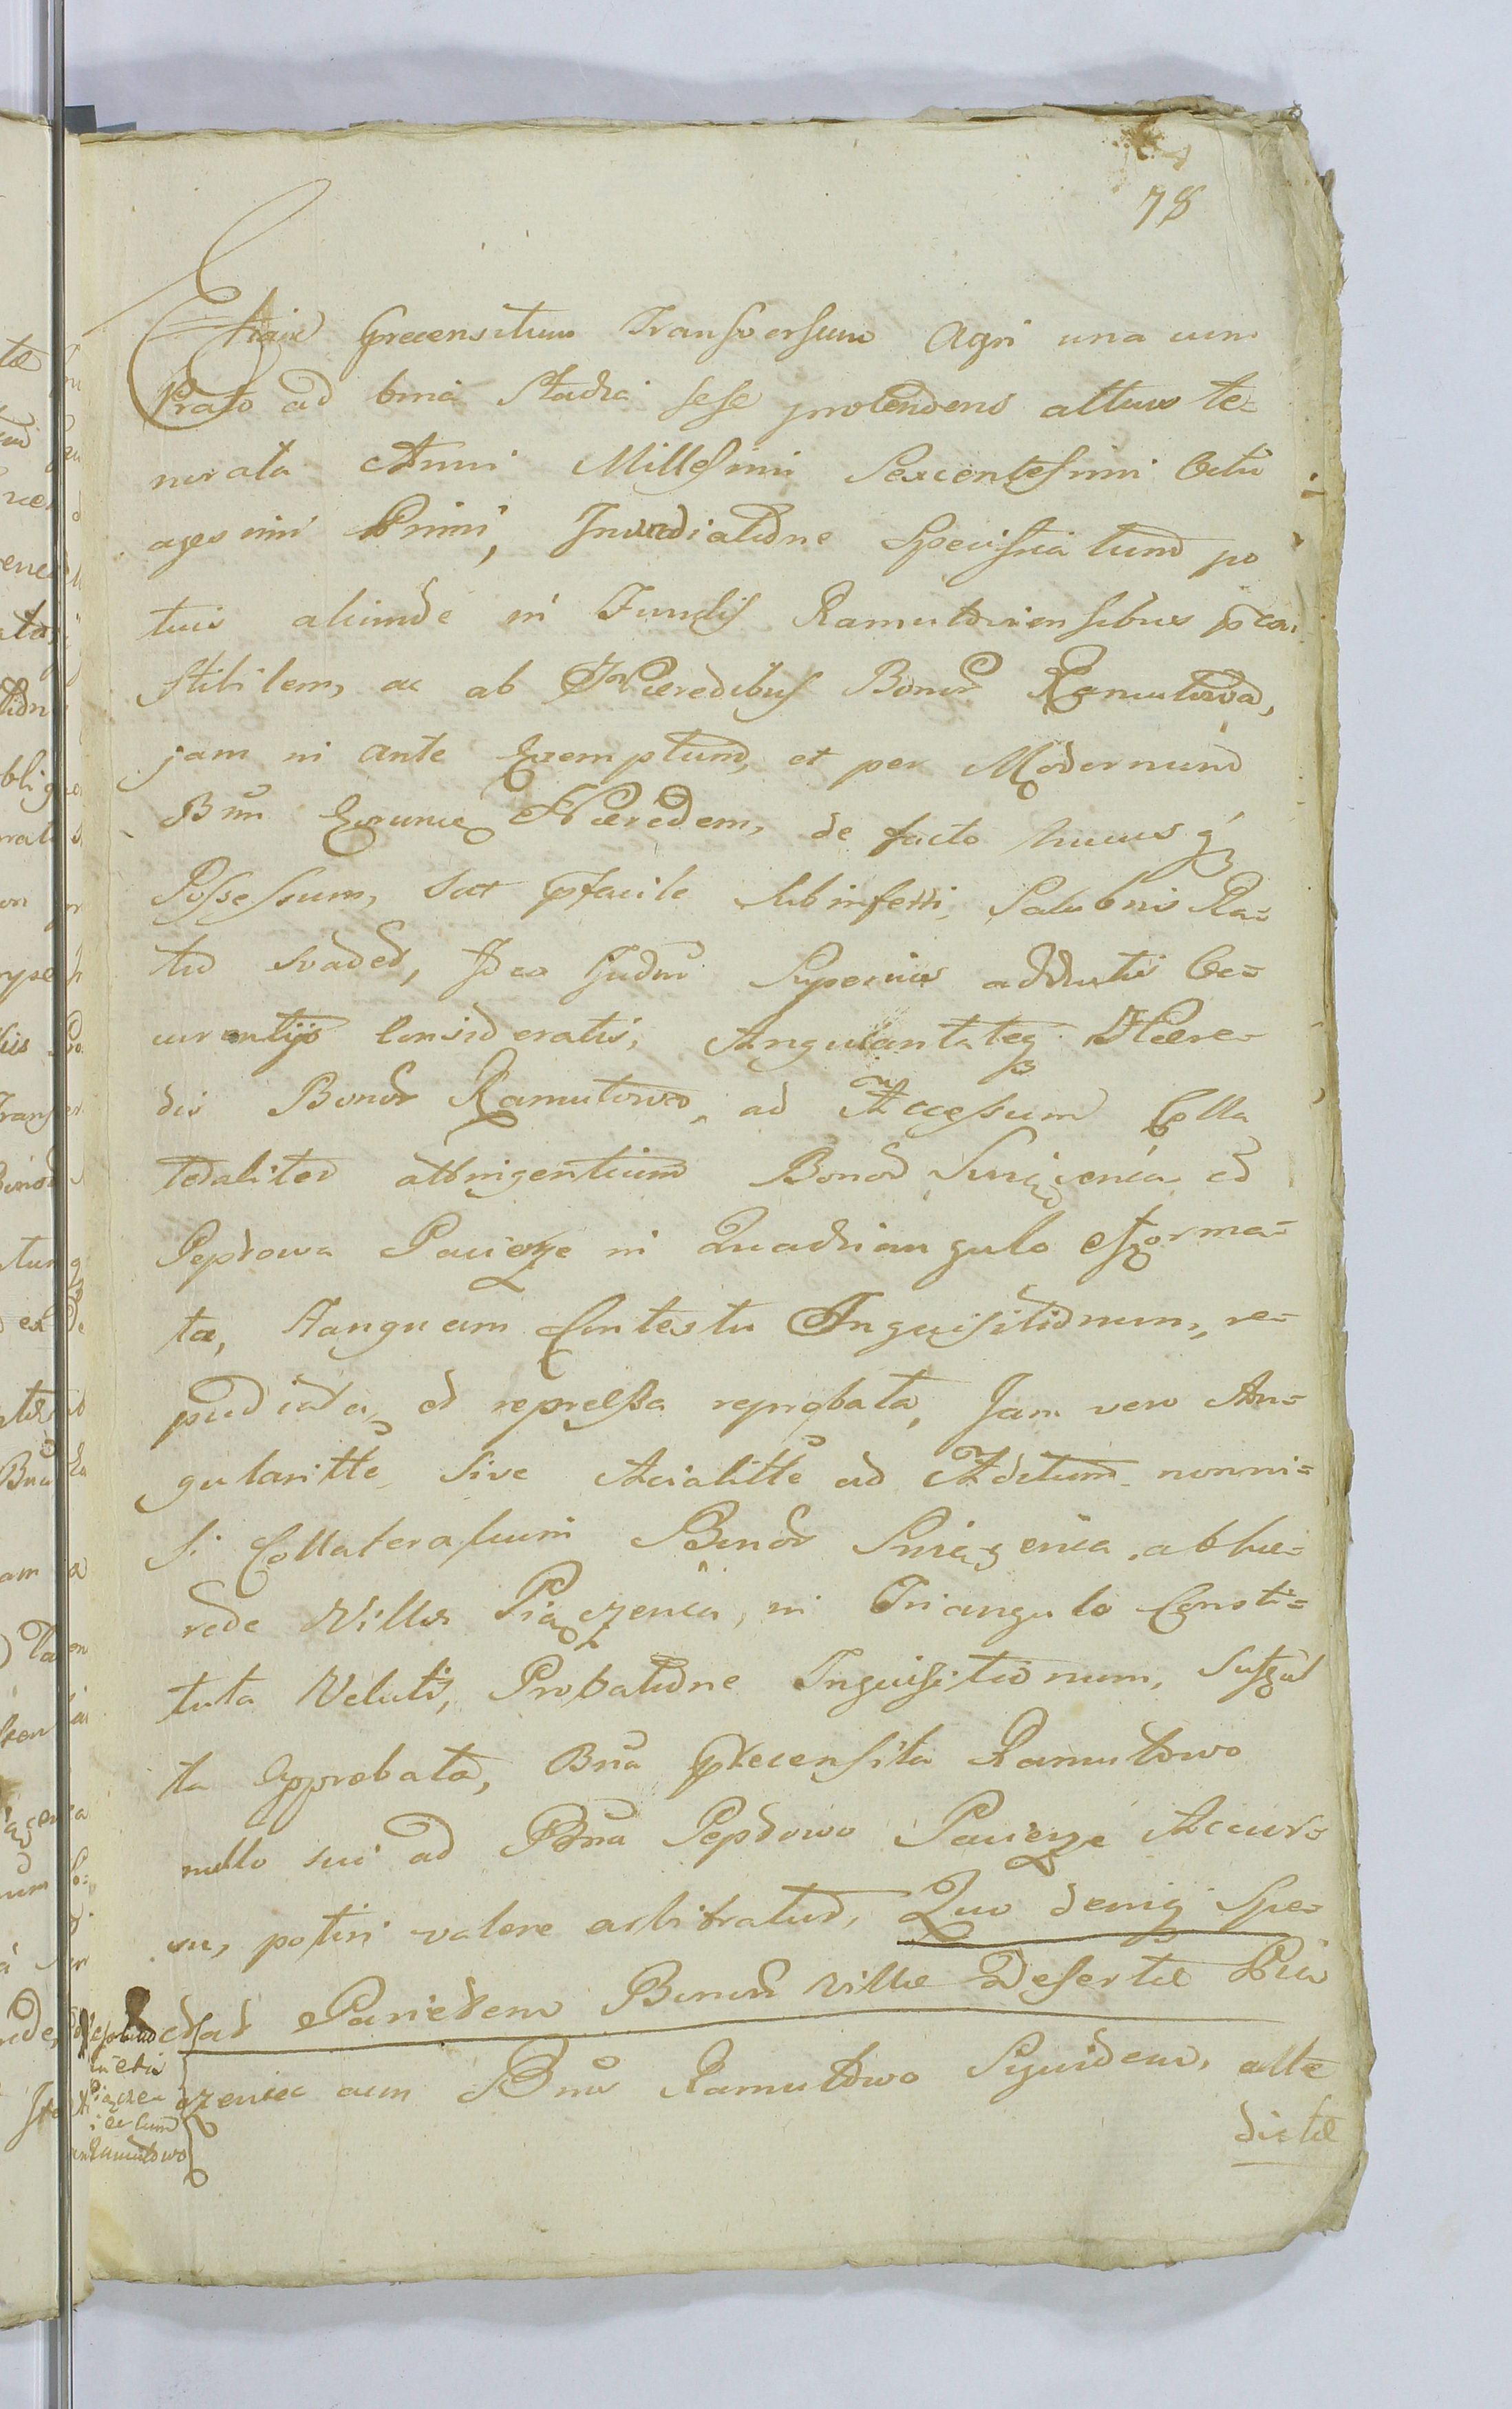 78
Etiam Precensitum Transversum Agri una cum
Prato ad bina Stadia sese protendens attum te-
nurata Anni Millesimi Sexcentesimi Octu
agesimi Primi, Inundiatione Specificatum po
tuis aliunde in Fundis Ramutoviensibus
stibilem, ac ab Hæredibus Bonor Ramutowa,
jam in ante Exemptum, et per Modernum
Bnu Eorumq Hæredem, de facto hucusq
Possessum, sat pfacile subinferri, Salubris Ra-
tio svadet, Ideo Judm Superius adductis Oc-
curentijs Consideratis, Angularitateq Hære-
dis Bonor Ramutowo, ad Accessum Colla
teraliter attingentium Bonor Smiązenia et
Peptowa Pacierze in Quadrangulo efforma-
ta, tanquam Contestu Inquisitionum, re-
pudiata, et repressa reprobata, Jam vero An-
gularitte, sive Acialitte ad Aditum nonni-
si Collateralium Bonor Smiązenia ab hæ-
rede Villæ Piączenia, in Triangulo Consti-
tuta Veluti, Probatione Inquisitionum, sufful
ta Approbata, Bna Precensita Ramutowo
nullo sui ad Bna Peptowo Pacierze Accur-
su, potiri valere arbitratur, Quo deniq Spe-
ctat Parietem Bonor Villæ Desertæ Pią
czeniæ cum Bnis Ramutowo Siquidem, altæ
dictæ
Piączen
Ramutowo